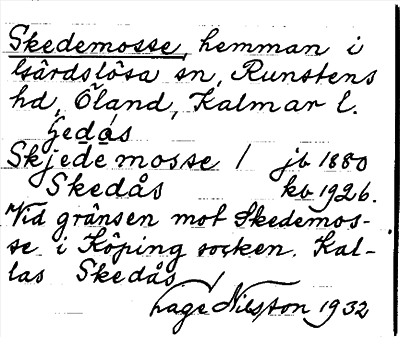 Skedemosse, hemman i
Gärdslösa sn, Runstens
hd, Öland, Kalmar l.
Gedås
Skjedemosse / jb 1880
Skedås kb 1926.
Vid gränsen mot Skedemos-
se i Köping socken. Kal-
las Skedås /
Lage Nilsson 1932